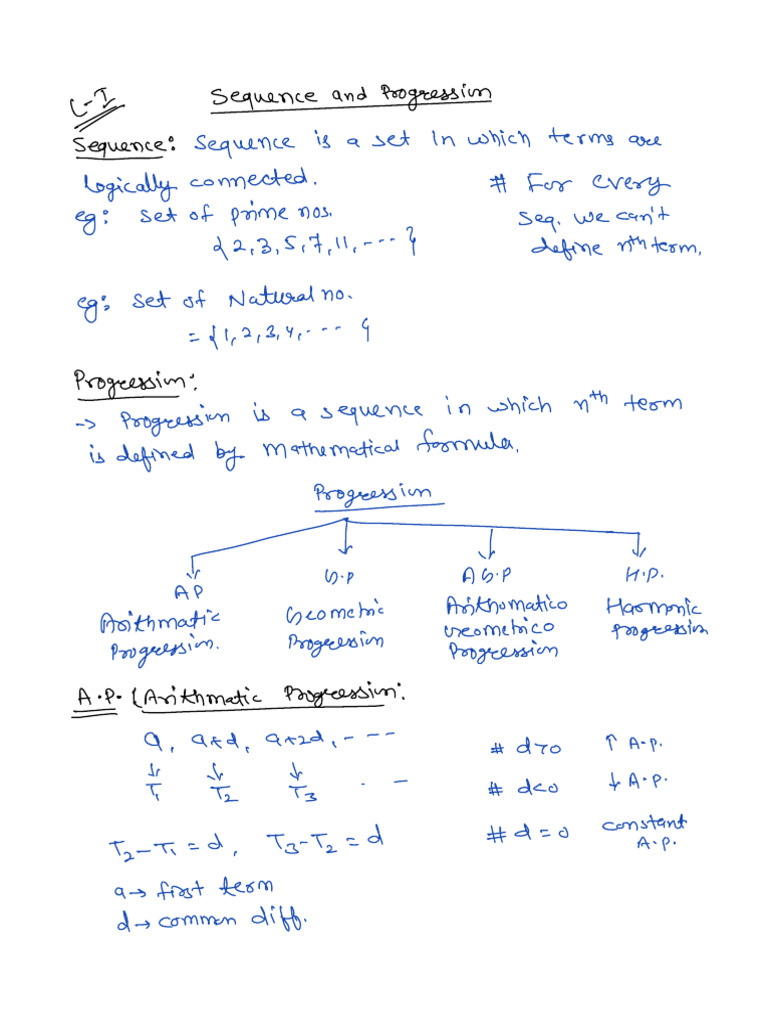 L-I Sequence and Progression
Sequence: Sequence is a set in which terms are
logically connected.
# For every
eg: set of prime nos.
seq. we can't
{2, 3, 5, 7, 11, ---}
define nth term.
eg: set of Natural no.
= {1, 2, 3, 4, ---- }
Progression:
-> Progression is a sequence in which nth term
is defined by mathematical formula.
Progression
AP G.P A G.P H.P.
Arithmatic Geometric Arithmatico Harmonic
Progression. Progression Geometrico Progression
Progression
A.P. (Arithmatic Progression:
a, a+d, a+2d, ---
# d>0 ↑ A.P.
↓ ↓ ↓
T1 T2 T3 . -
# d<0 ↓ A.P.
T2-T1 = d, T3-T2 = d
# d = 0 constant
A.P.
a→ first term
d→ common diff.